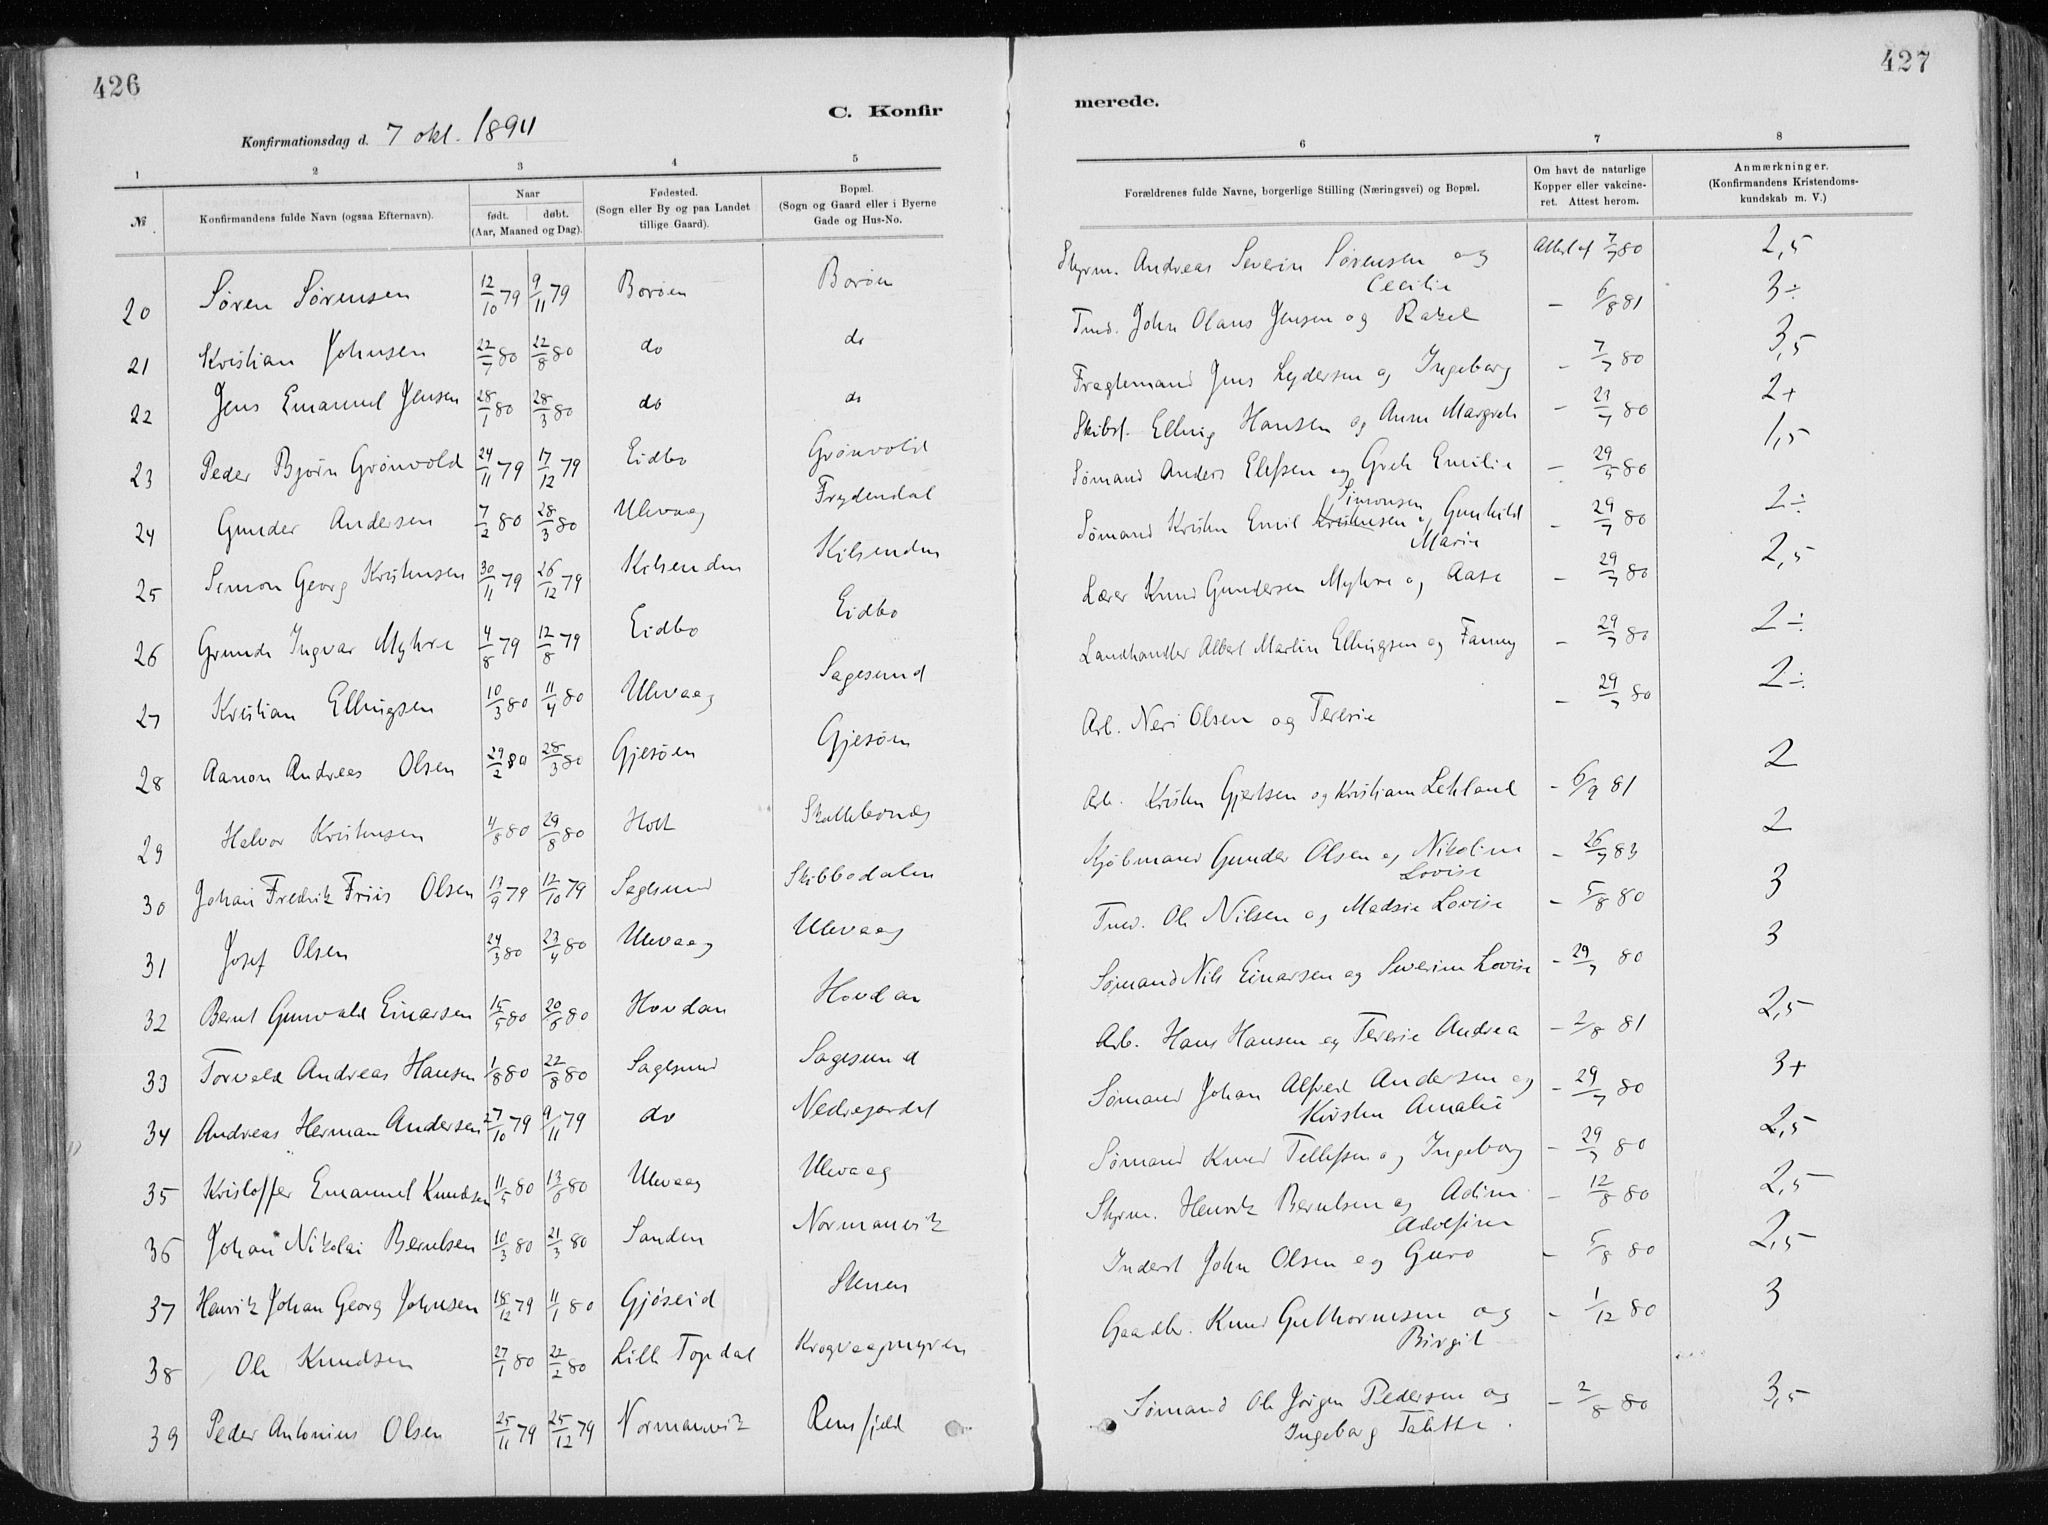 426
427
C. Konfir
merede.
Konfirmationsdag d. 7 okt. 1894
1 2 3 4 5 6 7 8
№
Konfirmandens fulde Navn (ogsaa Efternavn).
Naar
født. døbt.
(Aar, Maaned og Dag).
Fødested.
(Sogn eller By og paa Landet
tillige Gaard).
Bopæl.
(Sogn og Gaard eller i Byerne
Gade og Hus-No.
Forældrenes fulde Navne, borgerlige Stilling (Næringsvei) og Bopæl.
Om havt de naturlige
Kopper eller vakcine-
ret. Attest herom.
Anmærkninger.
(Konfirmandens Kristendoms-
kundskab m. V.)
20 Søren Sørensen 12/10 79 9/11 79 Borøen Borøen Styrm. Andreas Severin Sørensen og Cecilie Attest af 7/7 80 2,5
21 Kristian Johnsen 22/7 80 22/8 80 do do Tmd. John Olaus Jensen og Rakel - 6/8 81 3÷
22 Jens Emanuel Jensen 28/1 80 28/3 80 do do Fragtemand Jens Lydersen og Ingeborg - 7/7 80 3,5
23 Peder Bjørn Grönvold 24/11 79 17/12 79 Eidbo Grönvold Skibsf. Elling Hansen og Anne Margrete - 23/7 80 2+
24 Gunder Andersen 7/2 80 28/3 80 Ulevaag Frydendal Sømand Anders Elefsen og Grete Emilie - 29/5 80 1,5
25 Simon Georg Kristensen 30/11 79 26/12 79 Kilsenden Kilsenden Sømand Kristen Emil Kristensen Simonsen og Gunhild Marie - 29/7 80 2÷
26 Grunde Ingvar Myhre 4/8 79 12/8 79 Eidbo Eidbo Lærer Knud Gundersen Myhre og Aase - 29/7 80 2,5
27 Kristian Ellingsen 10/3 80 11/4 80 Ulevaag Sagesund Landhandler Albert Martin Ellingsen og Fanny - 29/7 80 2÷
28 Aanon Andreas Olsen 29/2 80 28/3 80 Gjesøen Gjesøen Arb. Neri Olsen og Teresie - 29/7 80 2÷
29 Halvor Kristensen 4/8 80 29/8 80 Holt Skottebonæs Arb. Kristen Gjertsen og Kristiane Lehland - 6/9 81 2
30 Johan Fredrik Friis Olsen 13/9 79 12/10 79 Sagesund Skibbodalen Kjøbmand Gunder Olsen og Nikoline Lovise - 26/7 83 2
31 Josef Olsen 24/3 80 23/4 80 Ulevaag Ulevaag Tmd. Ole Nilsen og Madsie Lovise - 5/8 80 3
32 Bernt Gunvald Einarsen 15/5 80 20/6 80 Hovdan Hovdan Sømand Nils Einarsen og Severine Lovise - 29/7 80 3
33 Torvald Andreas Hansen 1/8 80 22/8 80 Sagesund Sagesund Arb. Hans Hansen og Teresie Andrea - 2/8 81 2,5
34 Andreas Herman Andersen 27/10 79 9/11 79 do Nedregardet Sømand Johan Alfred Andersen og Kirsten Amalie - 29/7 80 3+
35 Kristoffer Emanuel Knudsen 11/5 80 13/6 80 Ulevaag Ulevaag Sømand Knud Tellefsen og Ingeborg - 29/7 80 2,5
36 Johan Nikolai Berntsen 10/3 80 21/3 80 Sanden Normanvik Styrm. Henrik Berntsen og Adine Adolfine - 12/8 80 2,5
37 Henrik Johan Georg Johnsen 18/12 79 11/1 80 Gjöseid Stenen Inderst John Olsen og Guro - 5/8 80 2,5
38 Ole Knudsen 27/1 80 22/2 80 Lille Topdal Krogvaagmyren Gaadbr. Knud Guthormsen og Birgit - 1/12 80 3
39 Peder Antonius Olsen 25/11 79 25/12 79 Normanvik Rensfjeld Sømand Ole Jørgen Pedersen og Ingeborg Talette. - 2/8 80 3,5